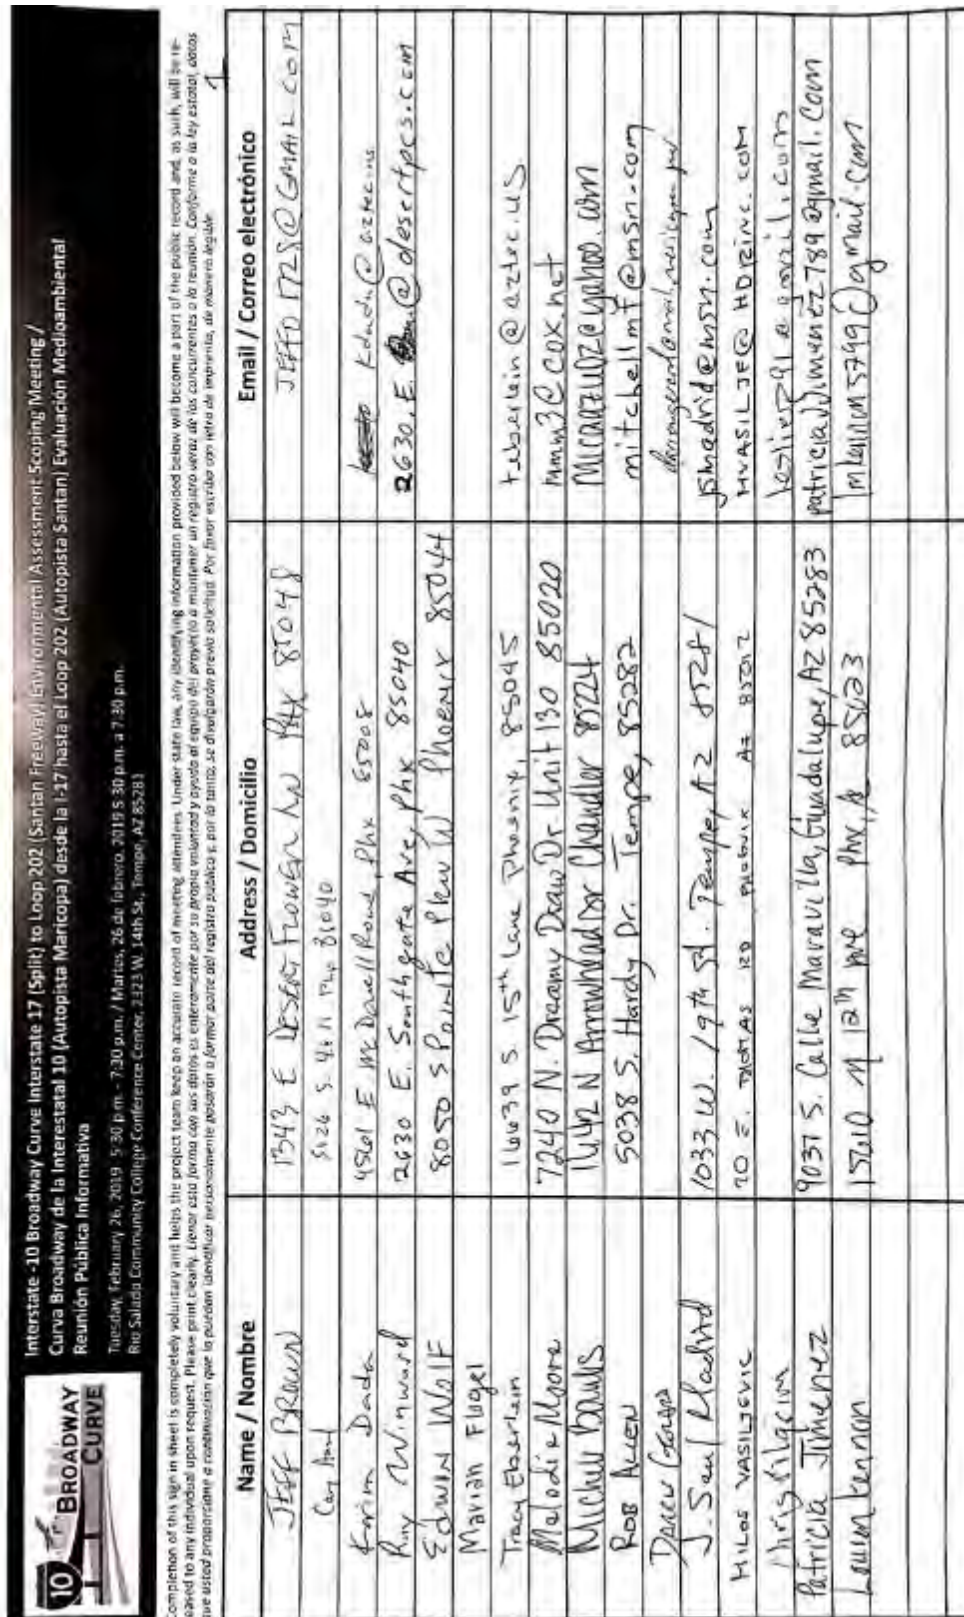 10 BROADWAY CURVE
Interstate -10 Broadway Curve Interstate 17 (Split) to Loop 202 (Santan Freeway) Environmental Assessment Scoping Meeting /
Curva Broadway de la Interestatal 10 (Autopista Maricopa) desde la I-17 hasta el Loop 202 (Autopista Santan) Evaluación Medioambiental
Reunión Pública Informativa
Tuesday, February 26, 2019 5:30 p.m. - 7:30 p.m. / Martes, 26 de febrero, 2019 5:30 p.m. a 7:30 p.m.
Rio Salado Community College Conference Center, 2323 W. 14th St., Tempe, AZ 85281
Completion of this sign in sheet is completely voluntary and helps the project team keep an accurate record of meeting attendees. Under state law, any identifying information provided below will become a part of the public record and, as such, will be re-
eased to any individual upon request. Please print clearly. Llenar esta forma con sus datos es enteramente por su propia voluntad y ayuda al equipo del proyecto a mantener un registro veraz de los concurrentes a la reunión. Conforme a la ley estatal, datos
que usted proporcione a continuación que lo puedan identificar personalmente pasarán a formar parte del registro público y, por lo tanto, se divulgarán previa solicitud. Por favor escriba con letra de imprenta, de manera legible.
Name / Nombre Address / Domicilio Email / Correo electrónico
JEFF BROWN 1343 E DESERT FLOWER LN PHX 85048 JEFFD1728@GMAIL.COM
5826 S. 46
Karim Dada 4561 E McDowell Road, Phx 85008 Kdada@aztec.us
Winward 2630 E. Southgate Ave, Phx 85040 2630.E. @desertpcs.com
EDWIN WOLF 8050 S Pointe Pkwy W Phoenix 85044
Marian Flugel
Tracy Eberlein 16639 S. 15th Lane Phoenix, 85045 teberlein@aztec.us
Melodie Moore 7240 N. Dreamy Draw Dr. Unit 130 85020 mmm3@cox.net
Michele 1642 N Arrowhead Dr Chandler 85224 @yahoo.com
ROB ALLEN 5038 S. Hardy Dr. Tempe, 85282 mitchellmf@msn.com
J. Saul Madrid 1033 W. 19th St. Tempe, AZ 85281 jsmadrid@msn.com
MILOS VASILJEVIC 20 E. THOMAS PHOENIX AZ 85012 MVASILJE@HDRINC.COM
Patricia Jimenez 9037 S. Calle Maravilla, Guadalupe, AZ 85283 patriciavjimenez789@gmail.com
15610 N 12th Ave Phx, 85023 @gmail.com